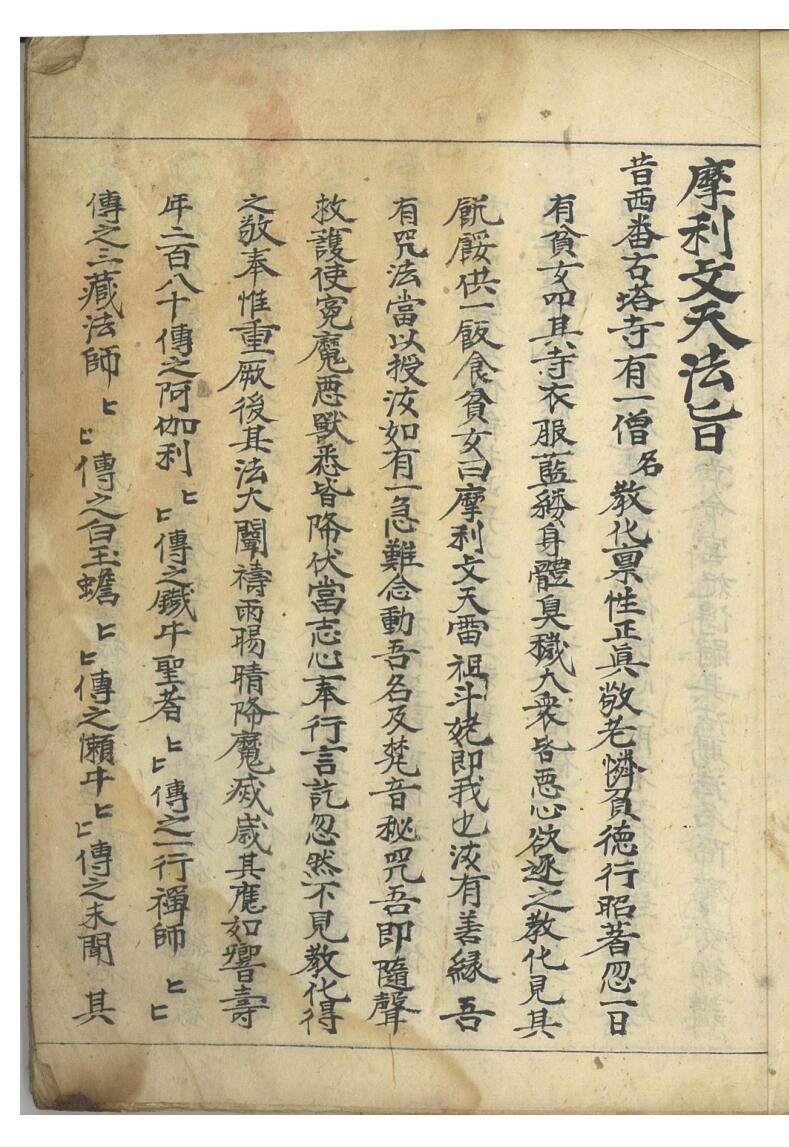 摩利攴天法旨
昔西番古塔寺有一僧名教化禀性正眞敬老憐負徳行昭著忽一日
有貧女叩其寺衣服藍縷身體臭穢大衆皆惡心欲逐之教化見其
飢餒供一飯食貧女曰摩利攴天雷祖斗姥即我也汝有善縁吾
有咒法當以授汝如有一急難念動吾名及梵音秘咒吾即隨聲
救護使寃魔惡獸悉皆降伏當志心奉行言訖忽然不見教化得
之敬奉惟重厥後其法大闡禱雨暘晴降魔滅崴其應如響壽
年二百八十傳之阿伽利〻傳之鐵牛聖者〻傳之一行禪師〻
傳之三藏法師〻傳之白玉蟾〻傳之懶牛〻傳之未聞 其